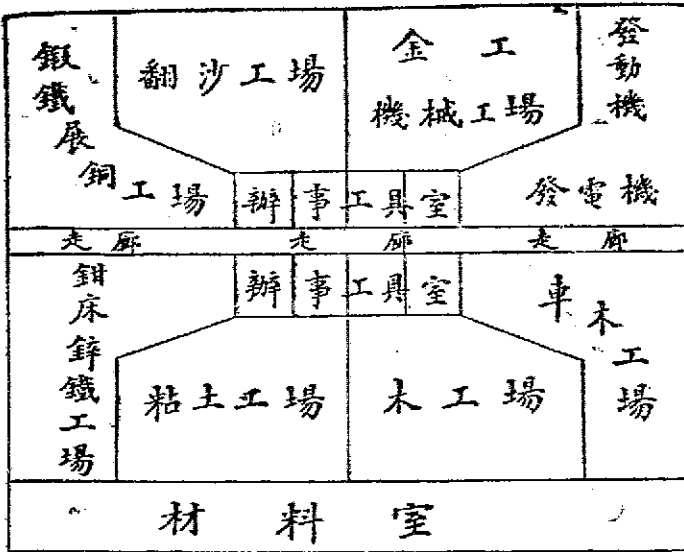 鍛鐵展銅工場
翻沙工場
金工
機械工場
發動機
發電機
辦事工具室
走廊 走廊 走廊
辦事工具室
鉗床鋅鐵工場
粘土工場
木工場
車木工場
材料室